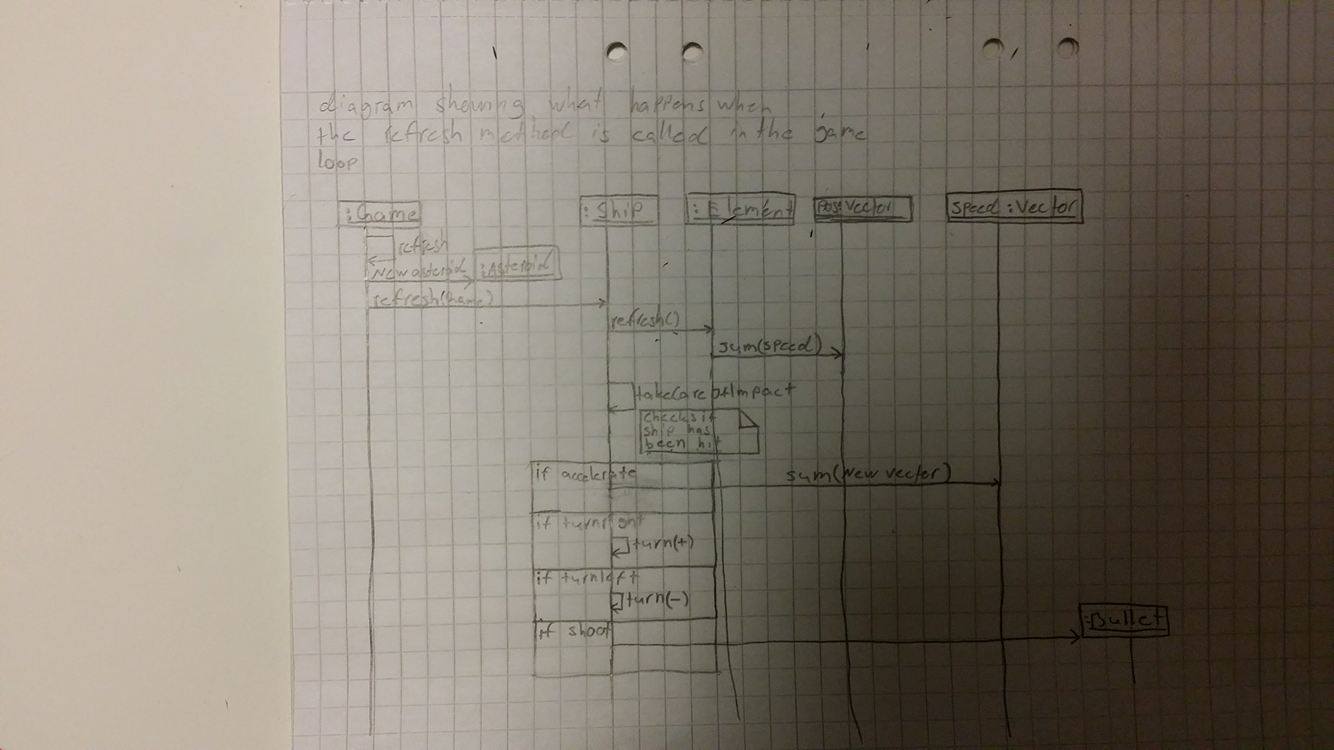 diagram showing what happens when
the refresh method is called in the game
loop
:Game
:Ship
:Element
pos:Vector
speed:Vector
refresh
New asteroid
:Asteroid
refresh(Game)
refresh()
sum(speed)
takeCareOfImpact
Checks if
ship has
been hit
if accelerate
sum(New vector)
if turnright
turn(+)
if turnleft
turn(-)
if shoot
:Bullet